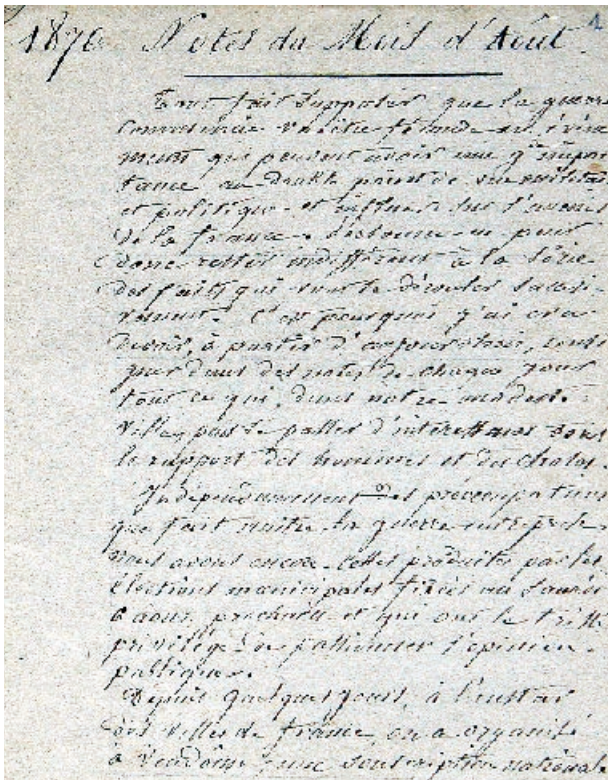 1870 Notes du Mois d'Août 1
Tout fait supposer que la guerre
commencée va être féconde en évène
ments qui peuvent avoir une gde impor
tance au double point de vue militaire
et politique et influer sur l'avenir
de la france. personne ne peut
donc rester indifférent à la série
des faits qui vont se dérouler succes
sivement. C'est pourquoi j'ai cru
devoir, à partir d'aujourd'hui, consi
gner dans des notes de chaque jour
tout ce qui, dans notre modeste
ville, peut se passer d'intéressant sous
le rapport des hommes et des choses.
Indépendamment des préoccupations
que fait naître la guerre entreprise
nous avons encore celles produites par les
élections municipales fixées au samedi
6 aout prochain et qui ont le triste
privilège de passionner l'opinion
publique.
Depuis quelques jours, à l'instar
des villes de france, on a organisé
à Vendôme une souscription nationale